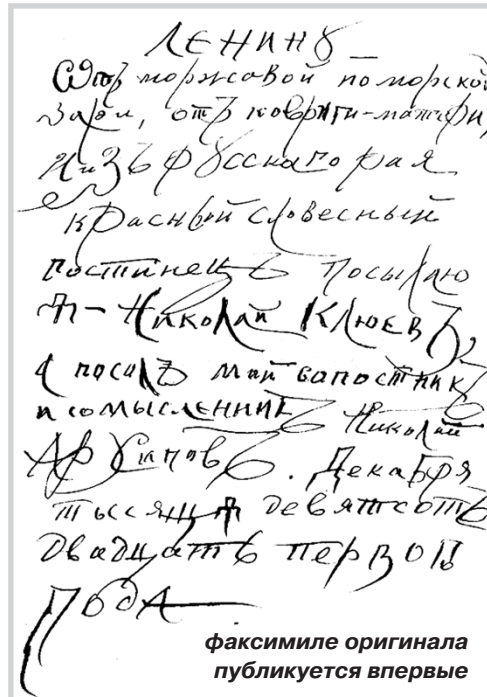 ЛЕНИНУ
Ѿтъ моржовой поморской
Зари, отъ ковриги-матери,
Изъ русскаго рая
красный словесный
гостинецъ посылаю
Ѧ – Николай Клюевъ,
а посолъ мой сопостникъ
и сомысленникъ Николай
Архиповъ. Декабря
тысяща девятьсотъ
двадцать первого
года
факсимиле оригинала
публикуется впервые